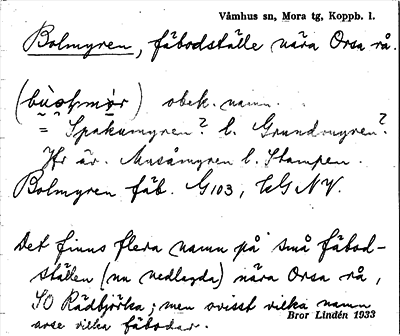 Våmhus sn, Mora tg, Koppb. l.
Bolmyren, fäbodställe nära Orsa rå.
obek. namn.
= Spakamyren? l. Grundmyren?
Jfr äv. Musåmyren l. Stampen.
Bolmyren fäb. G103,
Det finns flera namn på små fäbod-
ställen (nu nedlagda) nära Orsa rå,
SO Rädbjörka; men ovisst vilka namn
avse vilka fäbodar.
Bror Lindén 1933